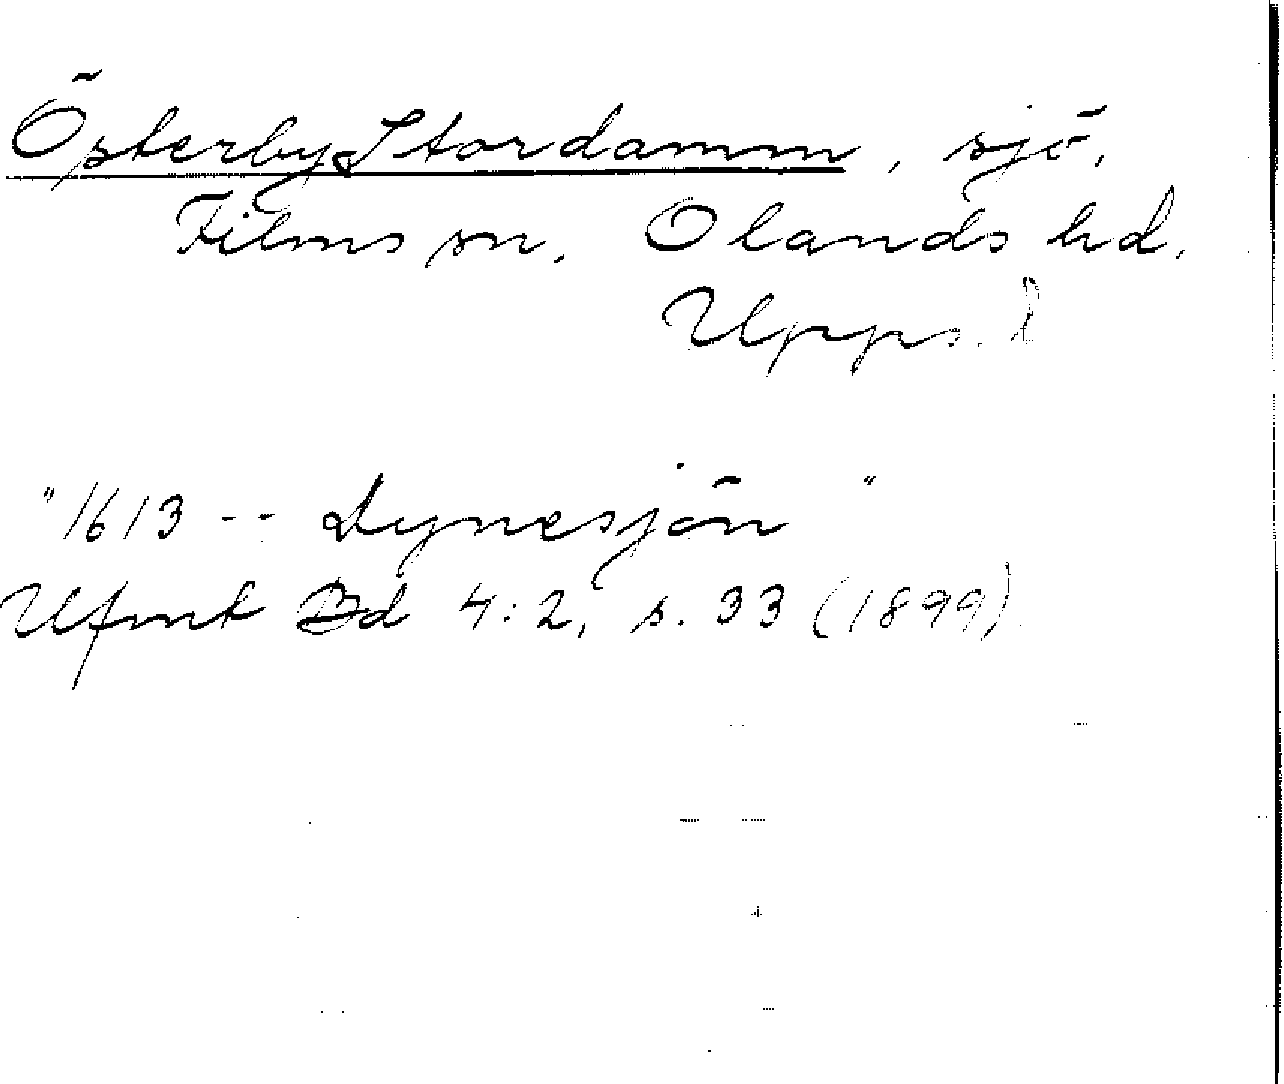 Österby Stordamm, sjö,
Films sn, Olands hd.
Upps. l
"1613 -- Dynesjön"
Ufmt Bd 4:2, s. 33 (1899)